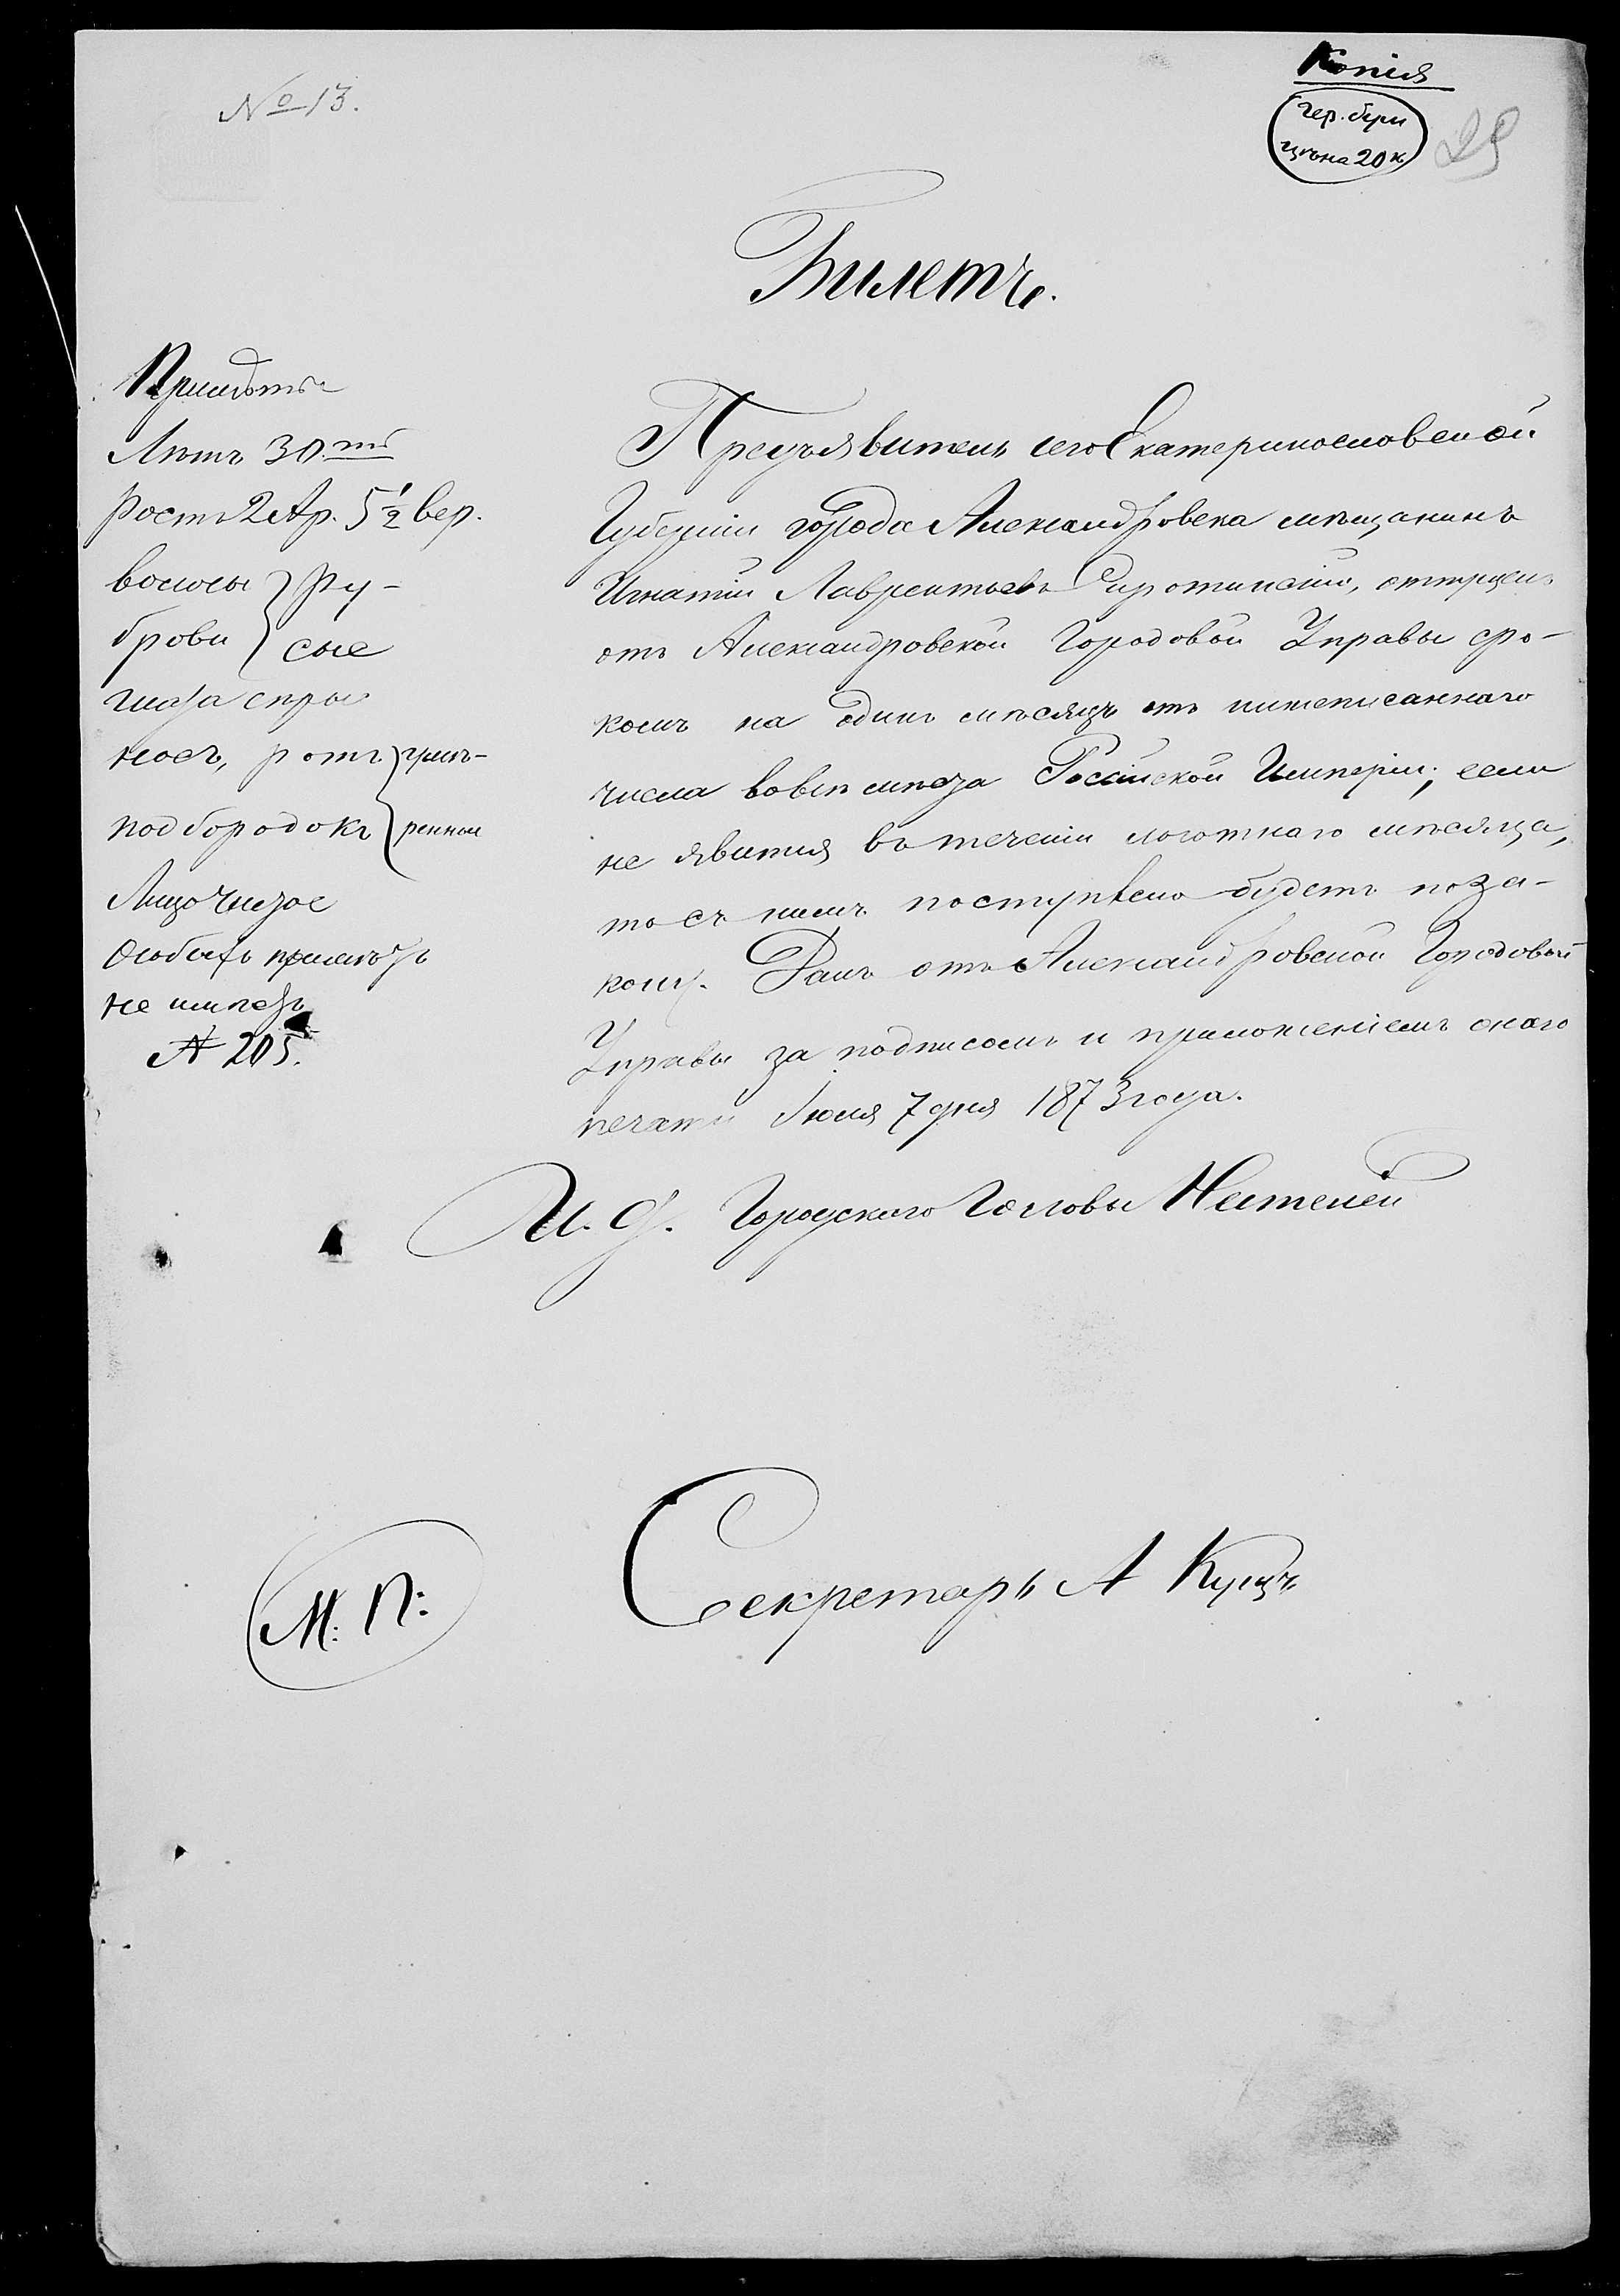 № 13.
Копія
гер. бум
цѣна 20 к.
29
Билетъ.
Примѣты
Лѣтъ 30.ть
Ростъ 2 Ар. 5 1/2 вер.
волосы } Ру-
брови } сые
глаза сѣрые
носъ, ротъ } умѣ-
подбородокъ } ренные
Лицо чистое
Особыхъ примѣтъ
не имѣетъ
№ 205.
Предъявитель сего Екатеринославской
Губерніи города Александровска мѣщанинъ
Игнатій Лаврентьевъ Сиротинскій, отпущенъ
отъ Александровской Городовой Управы сро-
комъ на одинъ мѣсяцъ отъ нижеписаннаго
числа во всѣ мѣста Россійской Имперіи; если
не явится въ теченіи льготнаго мѣсяца,
то съ нимъ поступлено будетъ по за-
кону. Данъ отъ Александровской Городовой
Управы за подписомъ и приложеніемъ оного
печати Іюля 7 дня 1873 года.
И. д. Городского Головы
Секретарь А Куцъ
М: П: